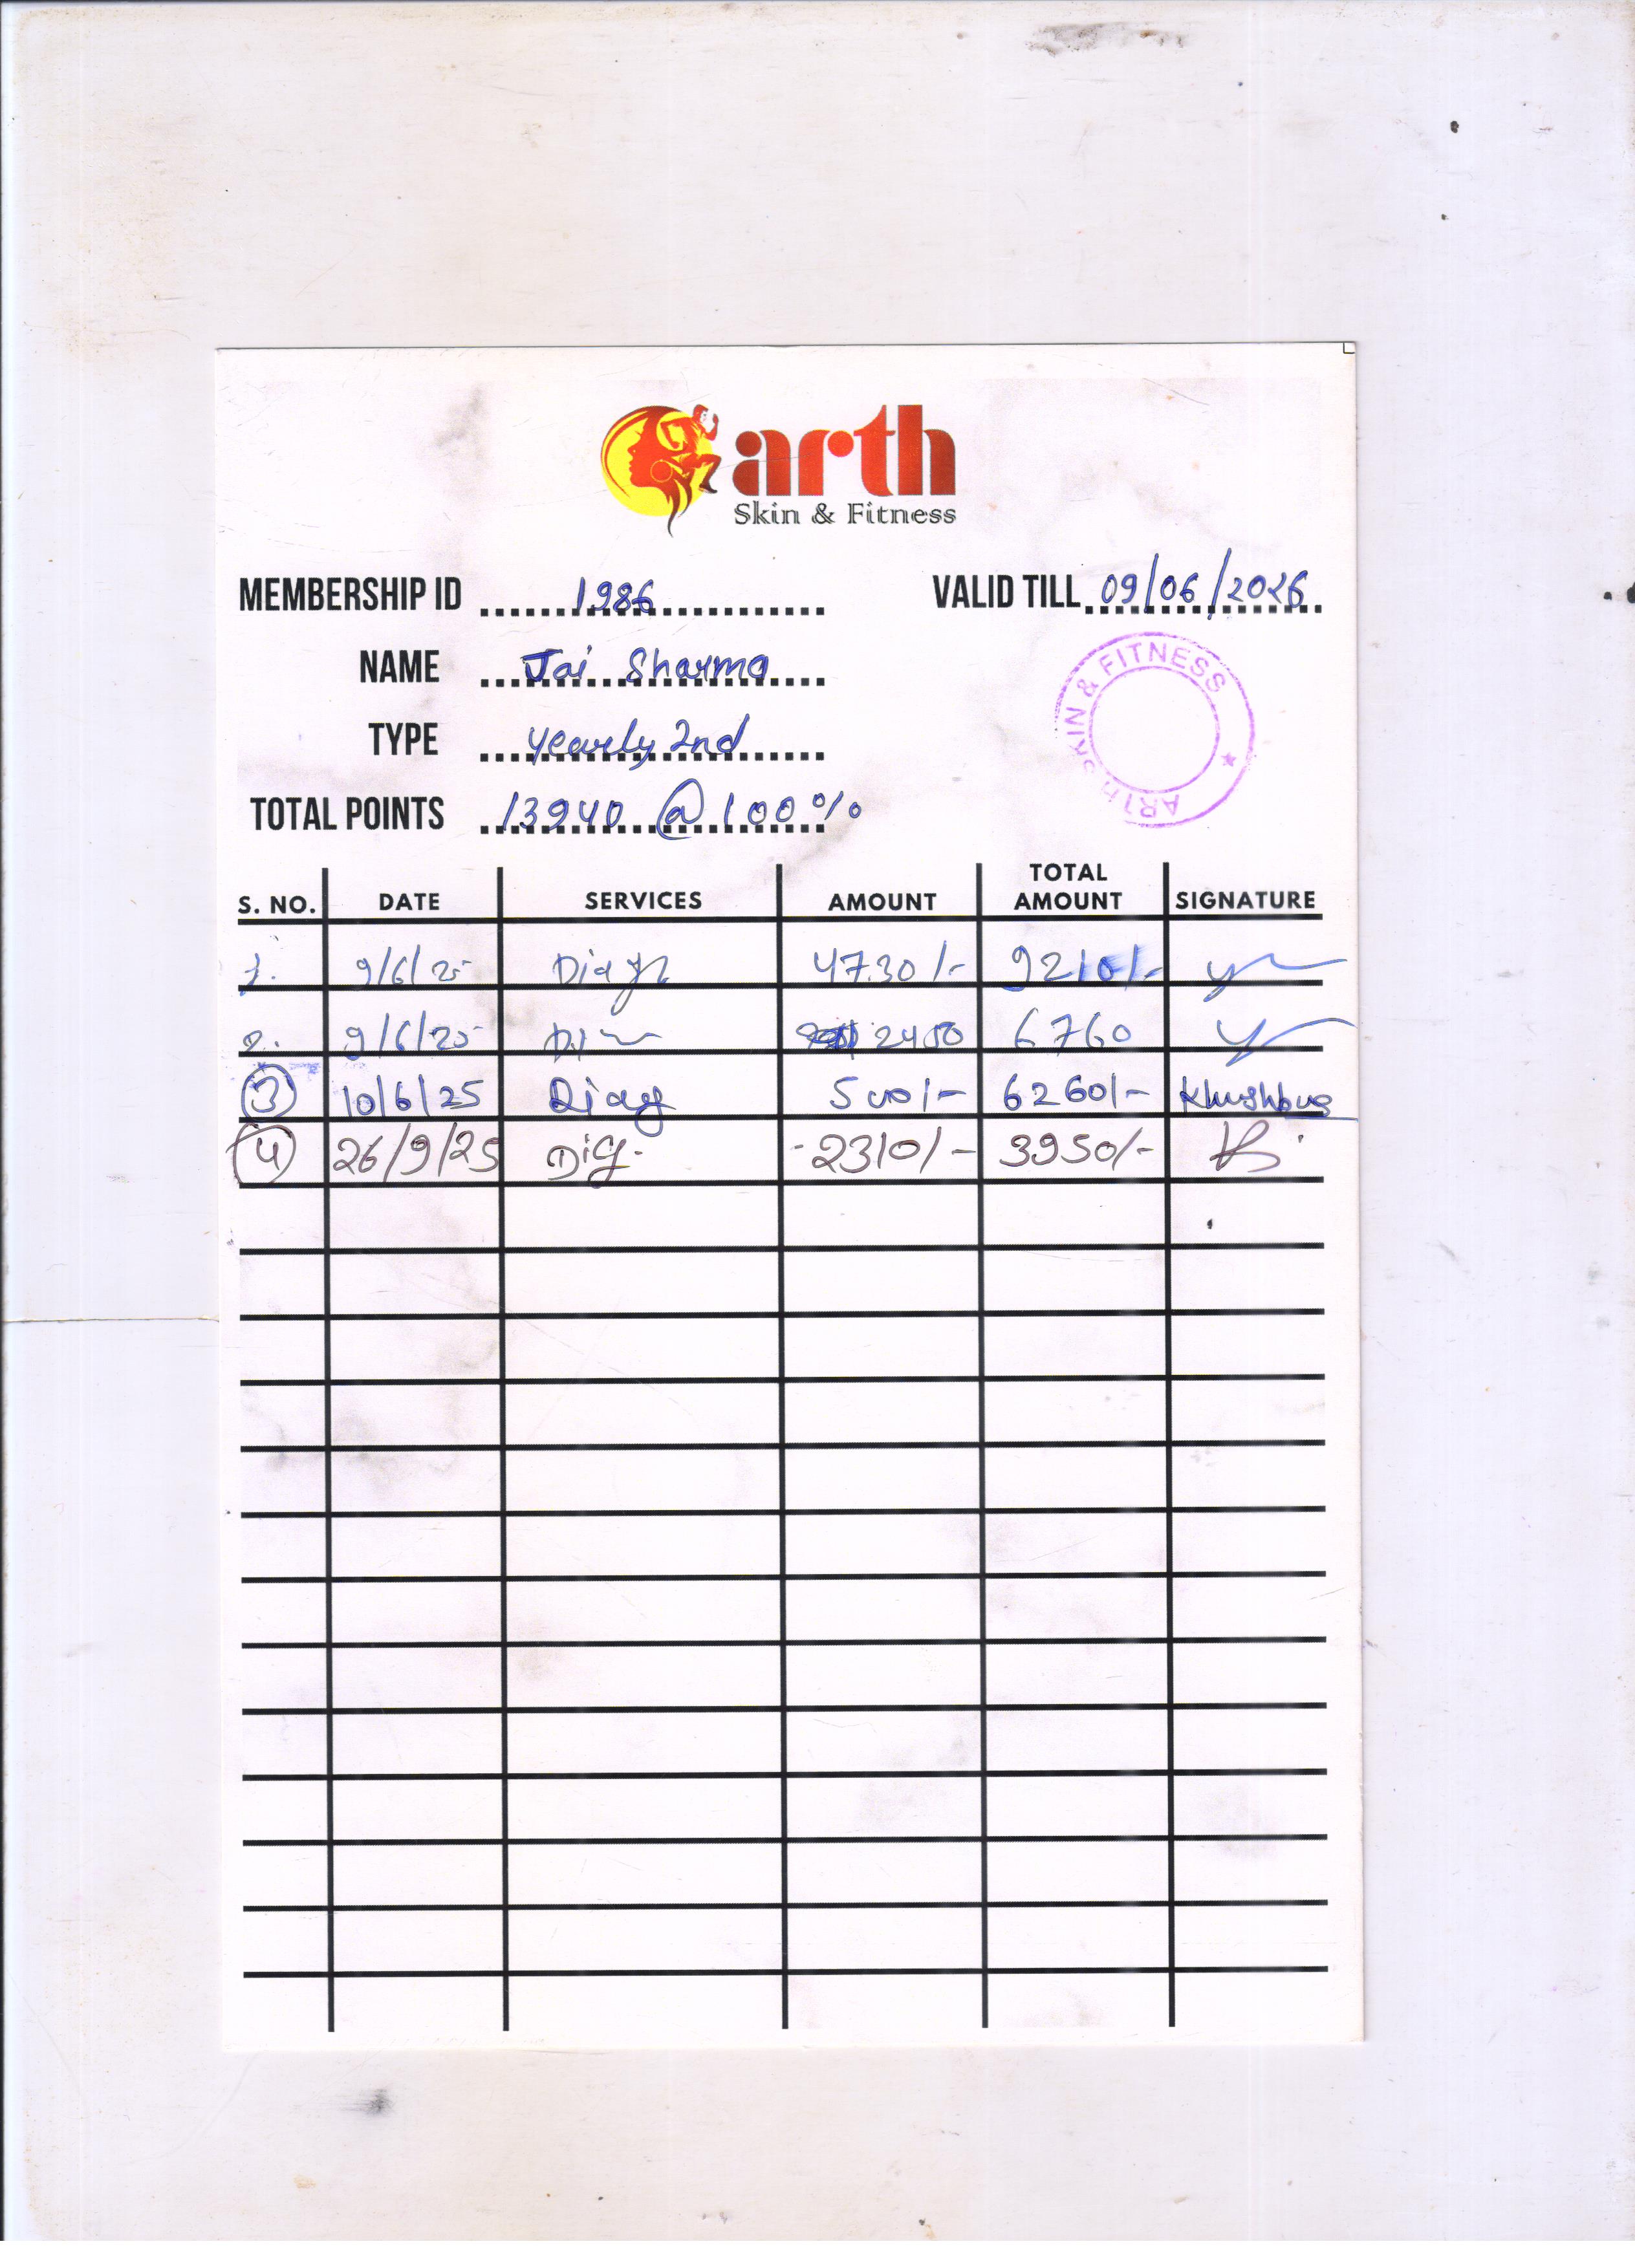 arth
Skin & Fitness
MEMBERSHIP ID 1986 VALID TILL 09/06/2026
NAME Jai Sharma
TYPE Yearly 2nd
TOTAL POINTS 13940 @ 100%
SKIN & FITNESS ★ ARTH
S. NO. DATE SERVICES AMOUNT TOTAL AMOUNT SIGNATURE
1. 9/6/25 4730/- 9210/-
2. 9/6/25 2450 6760
3 10/6/25 Diag 500/- 6260/- Khushboo
4 26/9/25 Dig. -2310/- 3950/-